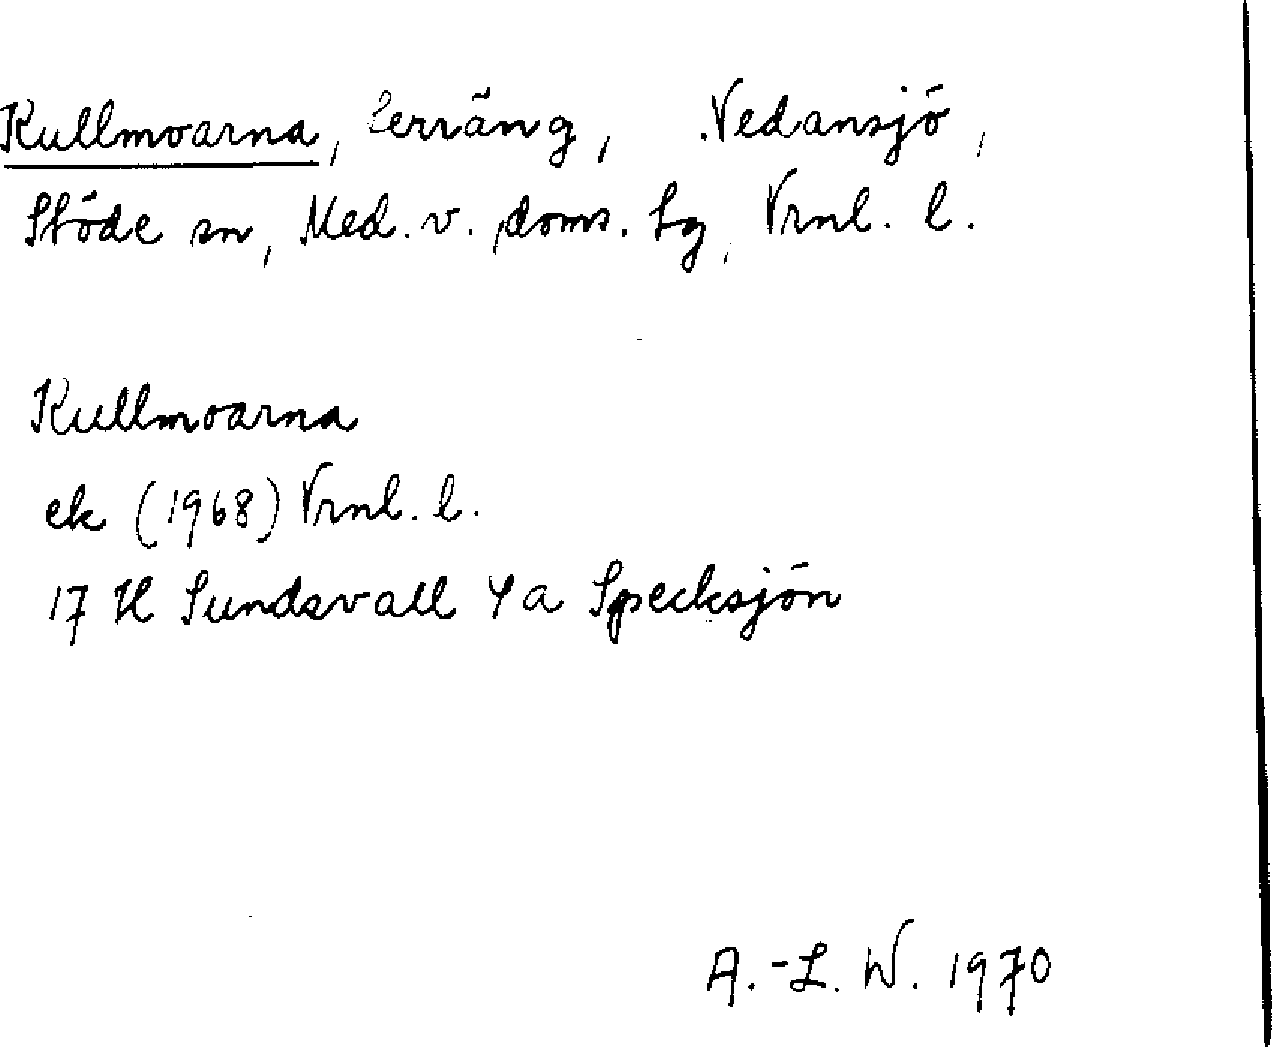 Kullmoarna, terräng, Nedansjö,
Stöde sn, Med. v. doms. lg, Vrnl. l.
Kullmoarna
ek (1968) Vrnl. l.
17 H Sundsvall 4 a Specksjön
A.-L. W. 1970